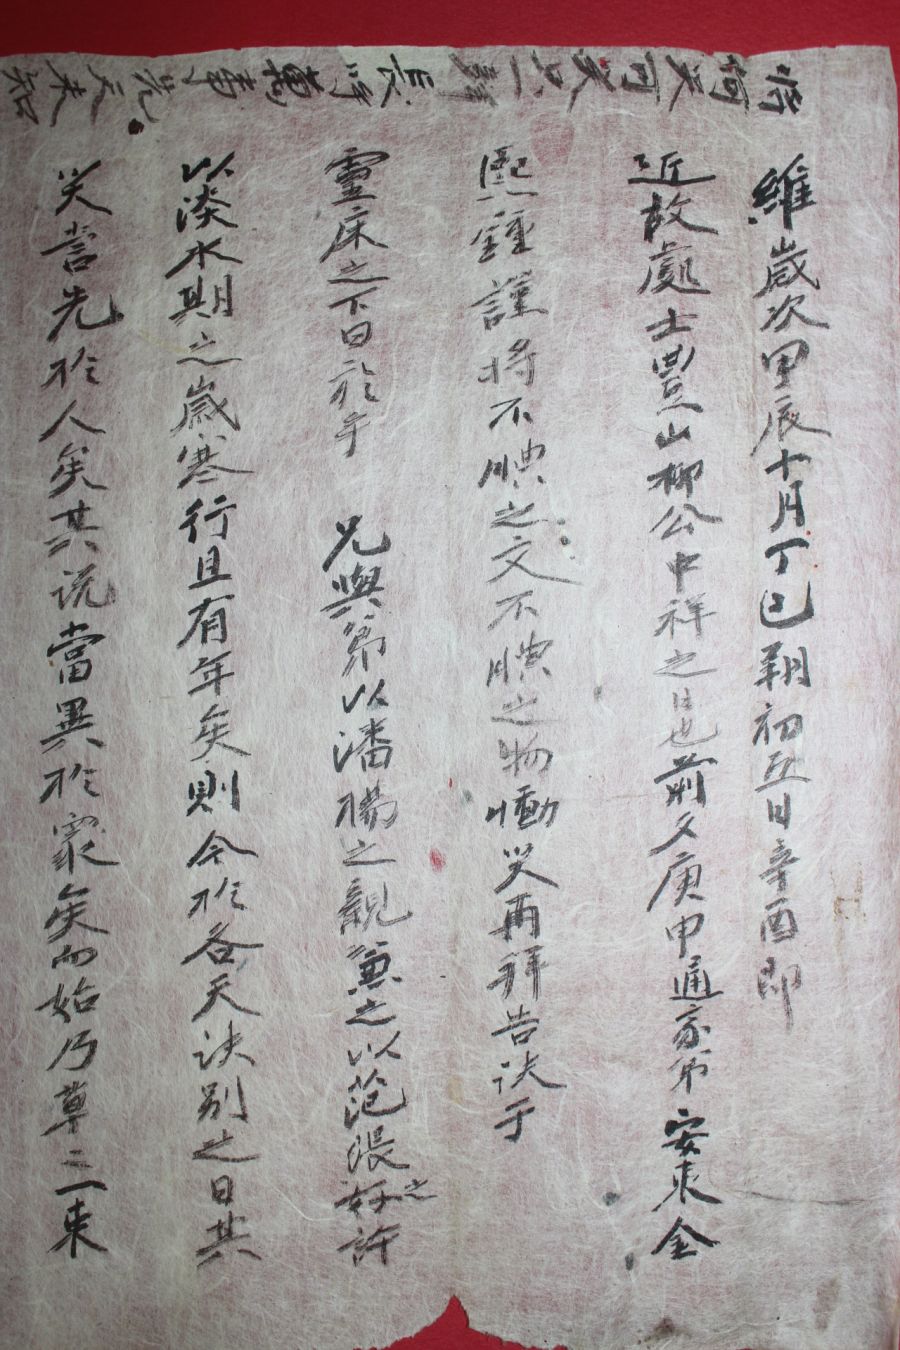 維歲次甲辰十月丁巳朔初五日辛酉即
近故處士豊山柳公中祥之日也前夕庚申通家弟安東金
熙鍾謹將不腆之文不腆之物慟哭再拜告訣于
靈床之下曰於乎 兄與弟以潘楊之親兼之以范張之好許
以淡水期之歲寒行且有年矣則今於各天訣別之日其
哭當先於人矣其説當異於衆矣而始乃草三束